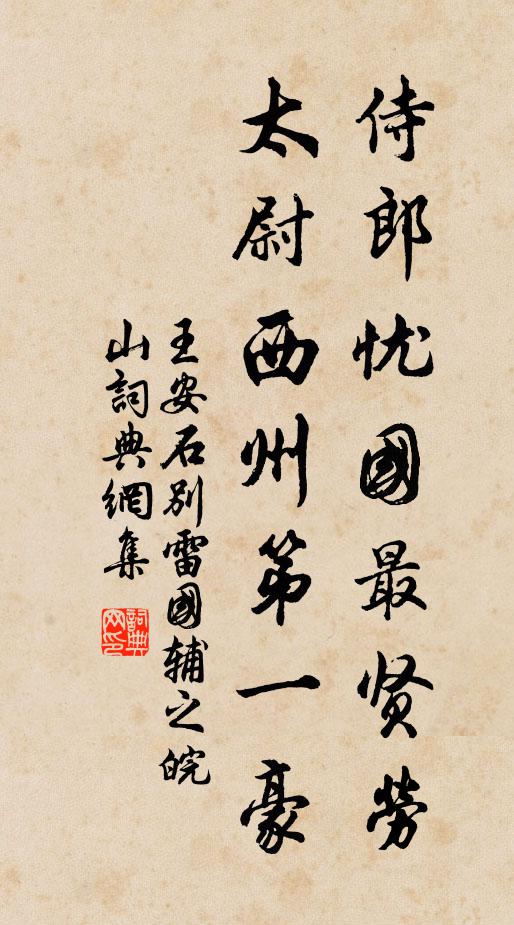 侍郎忧國最贤勞
太尉西州第一豪
王安石别雷國辅之皖
山詞典網集
詞典网印